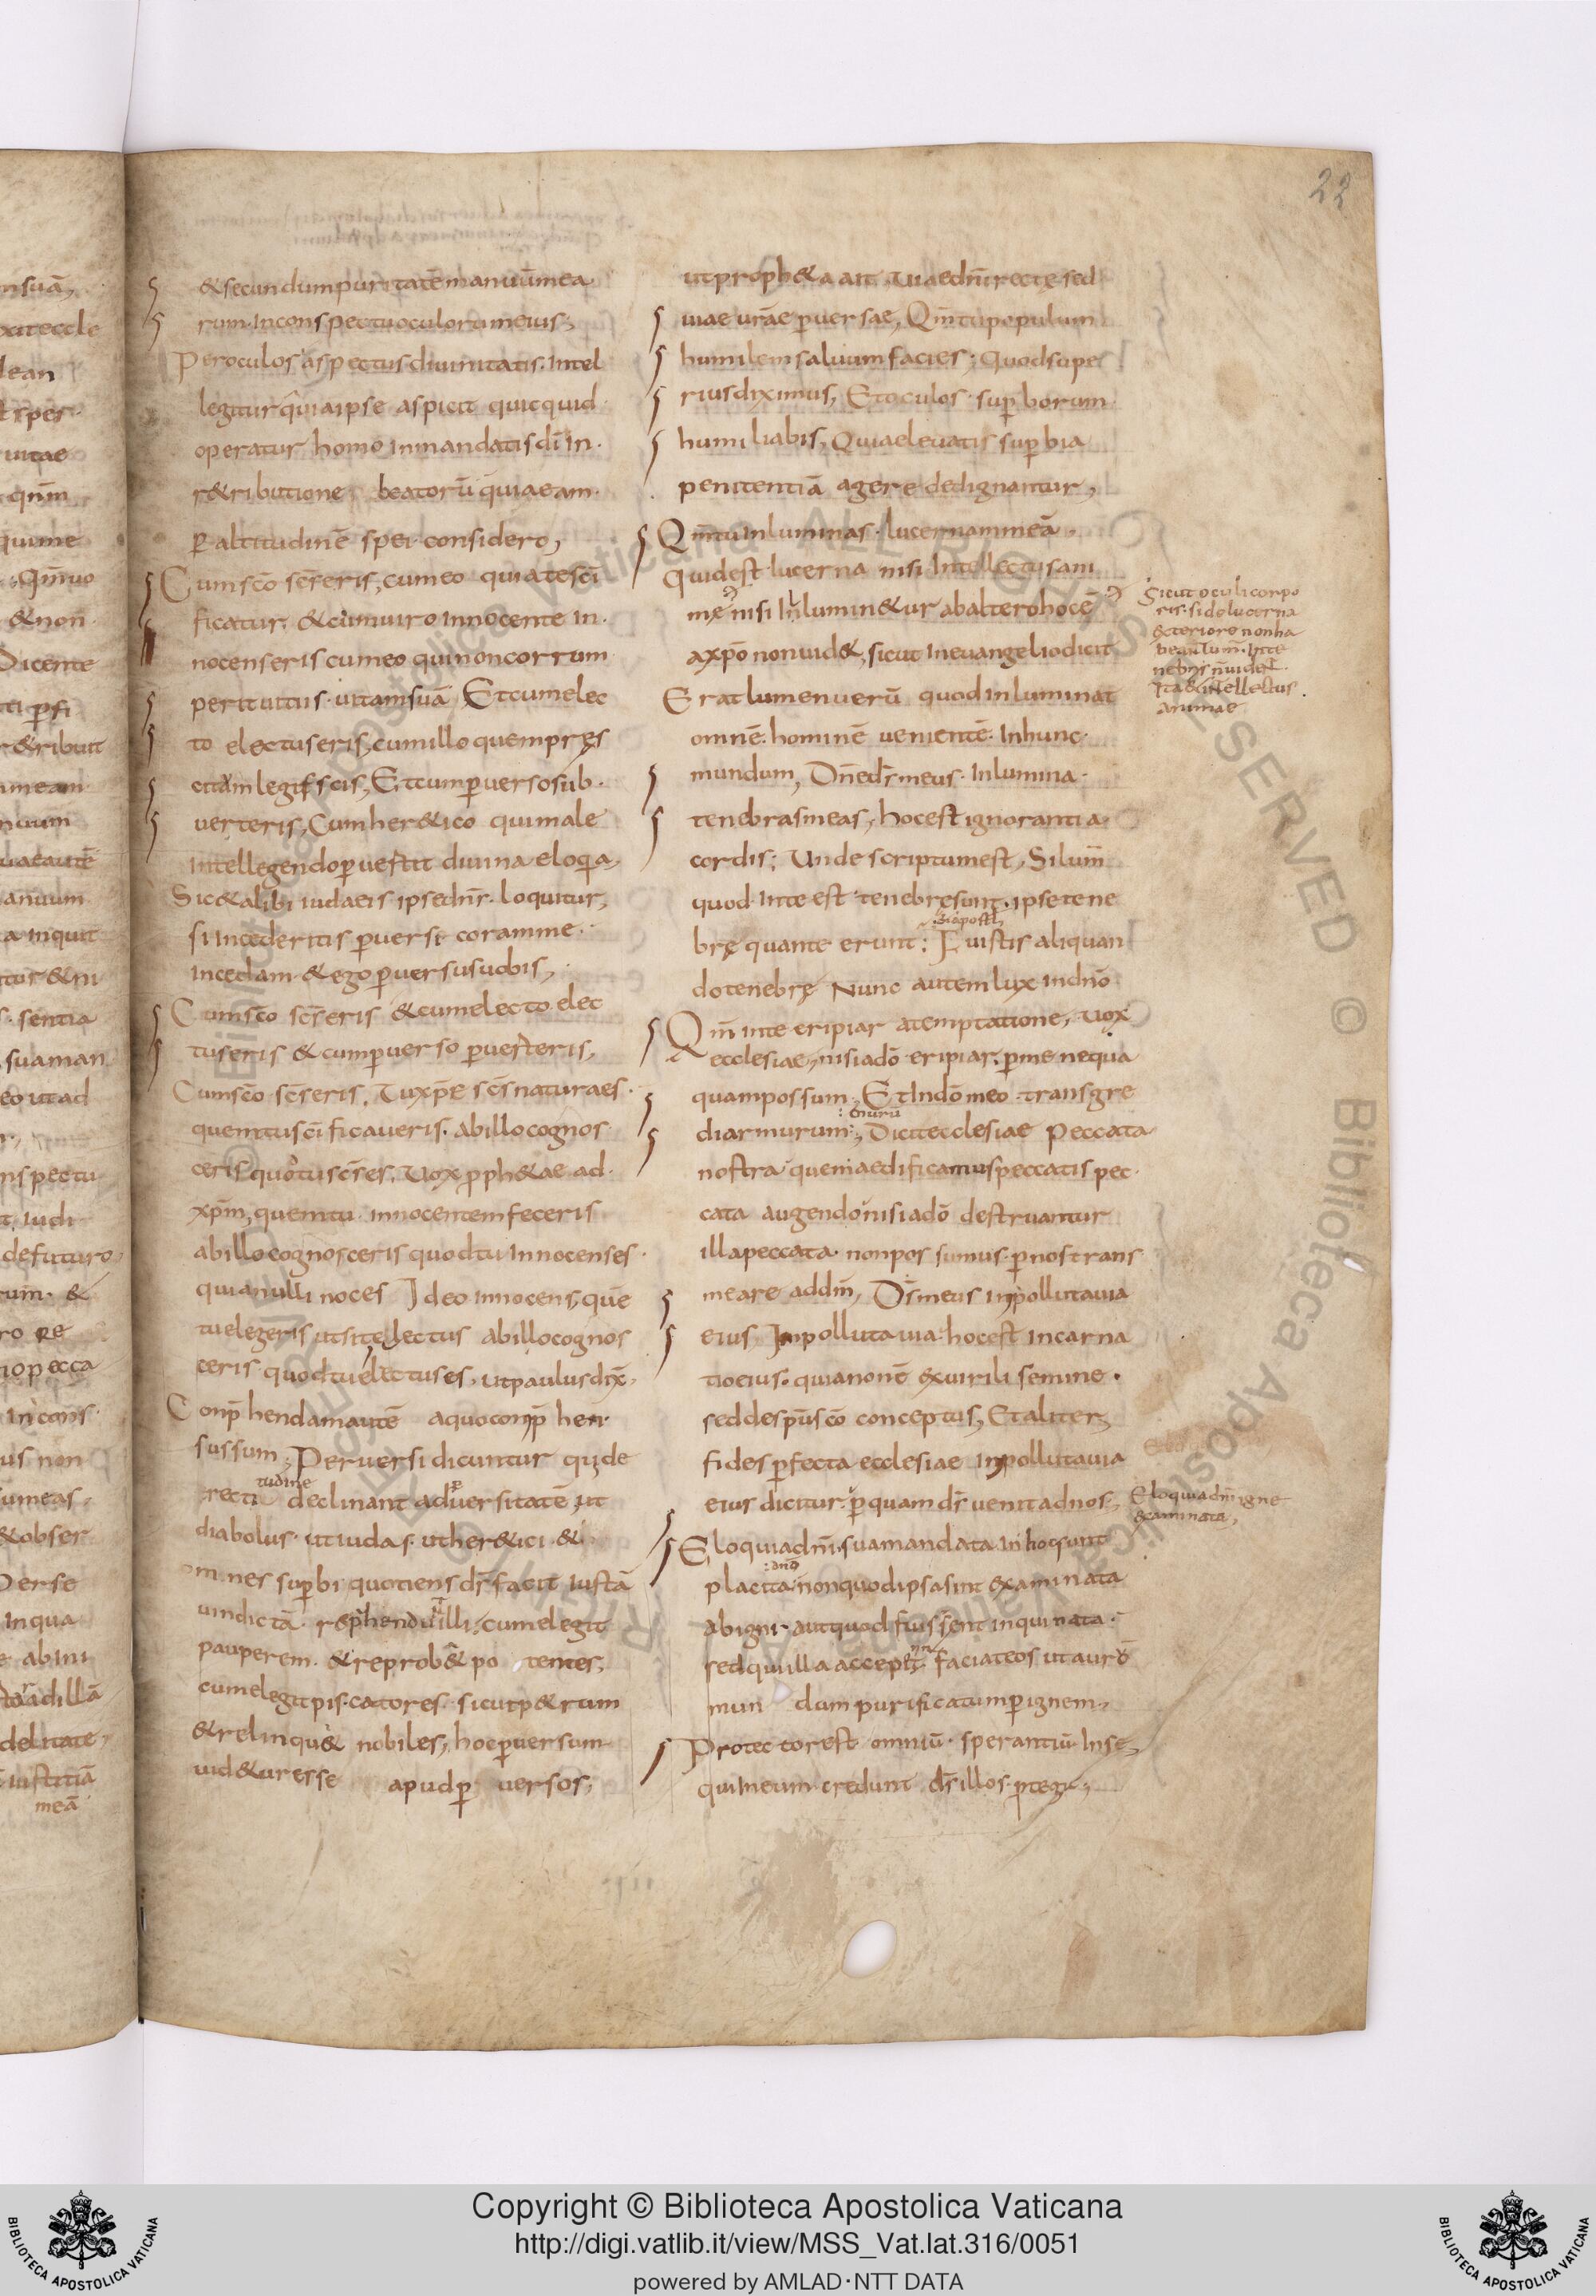 22
& secundum puritatē manuūmea
rum. Inconspectu oculorum eius;
Per oculos aspectus diuinitatis. Intel
legitur quia ipse aspicit quicquid
operatur homo inmandatis dī In
r&ributione beatorū quia eam
ꝑ altitudinē spei considero;
Cum scō scs̄ eris, cum eo qui a te scī
ficatur. & cum uiro Innocente In
nocens eris cum eo qui non corrum
perit uitiis uitam suā Et cum elec
to electus eris, cum illo quem pręs
citam legifscis; Et cum ꝑuerso sub
uerteris, Cum her&ico qui male
Intellegendo ꝑuestit diuina eloq̄a,
Sic & alibi iudaeis ipse dn̄s loquitur,
si Incederitis ꝑuersi coram me
Incedam & ego ꝑuersus uobis,
Cum scō scs̄ eris & cum electo elec
tus eris & cum ꝑuerso ꝑuesteris,
Cum scō scs̄ eris. Tu xp̄e scs̄ naturaes
quem tu scīficaueris. ab illo cognos
ceris quo tu scs̄ es. Vox proph&ae ad
xpm̄, quem tu Innocentem feceris
ab illo cognosceris quod tu Innocens es
quia nulli noces Ideo Innocens, quē
tu elegeris ut sit electus ab illo cognos
ceris quod tu electus es. ut paulus dix̄,
Conp̄hendam autē a quo conp̄hen
sus sum; Peruersi dicuntur qui de
tudine
recti declinant aduersitatē ut
diabolus ut iudas. ut her&ici &
omnes suꝑbi quotiens ds̄ facit iustā
uindictā rep̄hendit illi, cum elegit
pauperem. & reprob& potentes,
cum elegit piscatores sicut p&rum
& relinqu& nobiles, hoc ꝑuersum
uid&ur esse apud ꝑuersos;
ut proph&a ait Viae dn̄i rectę sed
uiae urāe ꝑuersae, Qm̄ tu populum
humilem saluum facies; Quod supe
rius diximus, Et oculos suꝑborum
humiliabis, Quia eleuatis suꝑbia
penitentiā agere dedignantur,
Qm̄ tu Inluminas lucernam meā
Quid est lucerna nisi Intellectus ani
mę nisi Inlumin&ur ab altero hoc ē
a xpō non uid&, sicut In euangelio dicit
Erat lumen uerū quod Inluminat
omnē hominē uenientē In hunc
mundum, Dn̄e ds̄ meus Inlumina
tenebras meas, hoc est ignorantia
cordis; Unde scriptum est, Si lum̄
quod In te est tenebrę sunt, ipse tene
brę quante erunt; Fuistis aliquan
do tenebrę Nunc autem lux In dn̄o
Qm̄ In te eripiar a temptatione, Vox
ecclesiae, nisi a dō eripiar. ꝑ me nequa
quam possum, Et In dō meo transgre
diar murum; Dicit ecclesiae Peccata
nostra quem aedificamus peccatis pec
cata augendo nisi a dō destruantur
illa peccata non possumus ꝑ nos trans
meare ad dm̄, Ds̄ meus Inpolluta uia
eius Inpolluta uia hoc est Incarna
tio eius. quia non ē ex uirili semine
sed de spū scō conceptus, Et aliter,
fides ꝑfecta ecclesiae Inpolluta uia
eius dicitur. ꝑ quam ds̄ uenit ad nos,
Eloquia dn̄i. sua mandata In hoc sunt
placita non quod ipsa sint examinata
ab igni aut quod fuissent Inquinata
sed qui illa accep̄ faciat eos ut aurū
mundum purificatum ꝑ ignem,
Protector est omniū sperantiū In se,
qui In eum credunt ds̄ illos ꝓtegit,
Sicut oculi corpo
ris. si de lucerna
exteriore non ha
beant lum̄. In te
nebris n̄ uident
Ita & Intellectus
animae
Eloquia dn̄i igne
examinata,
Copyright © Biblioteca Apostolica Vaticana
http://digi.vatlib.it/view/MSS_Vat.lat.316/0051
powered by AMLAD·NTT DATA
BIBLIOTECA APOSTOLICA VATICANA
BIBLIOTECA APOSTOLICA VATICANA